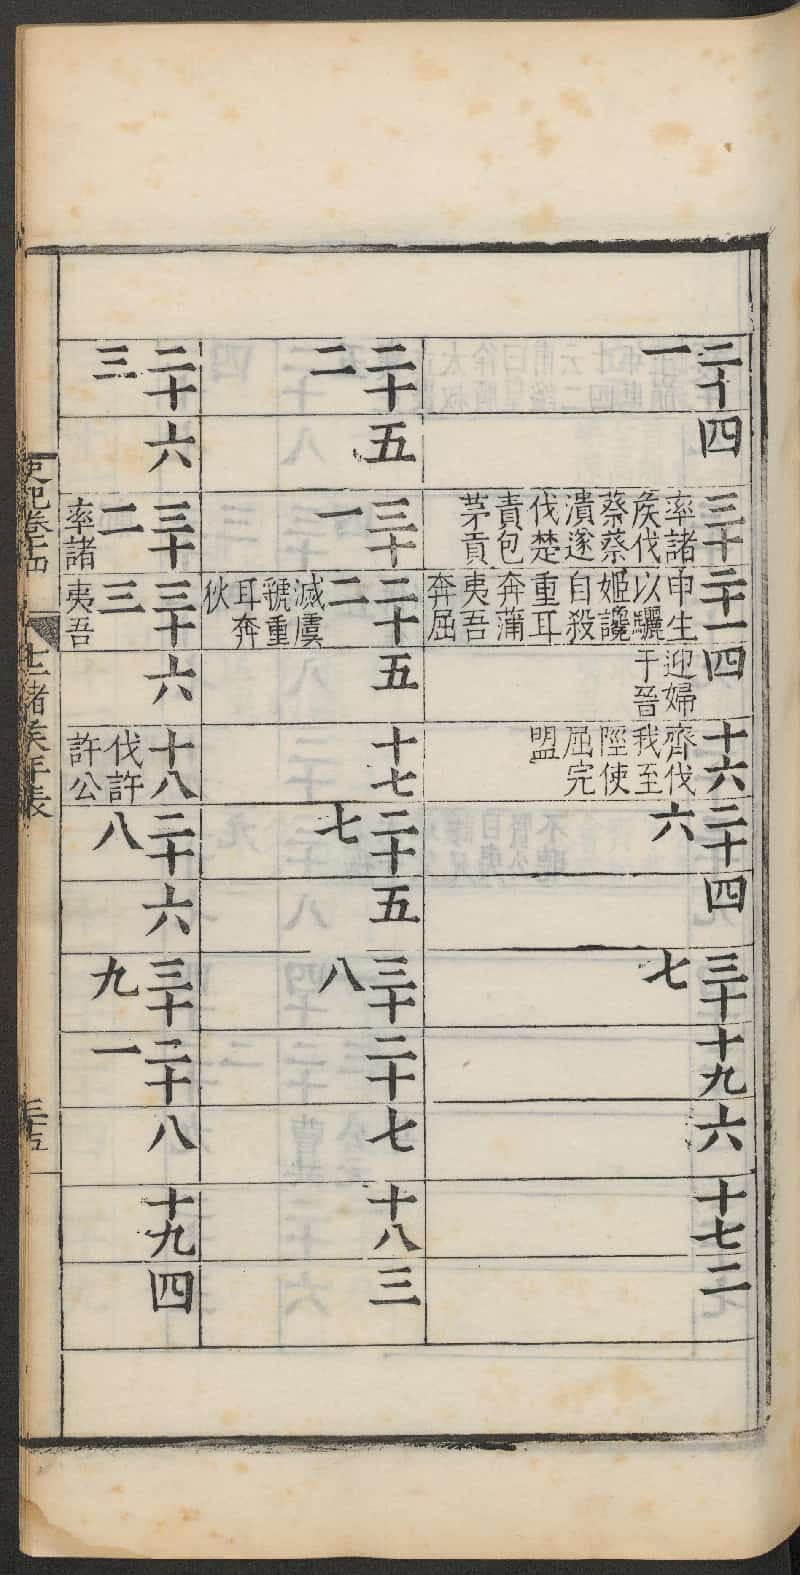 二十
一
四
三十
率諸
矦伐
蔡蔡
潰遂
伐楚
責包
茅貢
二十一
申生
以驪
姬讒
自殺
重耳
奔蒲
夷吾
奔屈
四
迎婦
于晉
十六
齊伐
我至
陘使
屈完
盟
二十
六
四
三十
七
十九
六
十七
二
二十
二
五
三十
一
二十
二
滅虞
虢重
耳奔
狄
五
十七
二十
七
五
三十
八
二十
七
十八
三
二十
三
六
三十
二
率諸
三十
三
夷吾
六
十八
伐許
許公
二十
八
六
三十
九
二十
一
八
十九
四
史記卷十四
十二諸矦年表
三十五